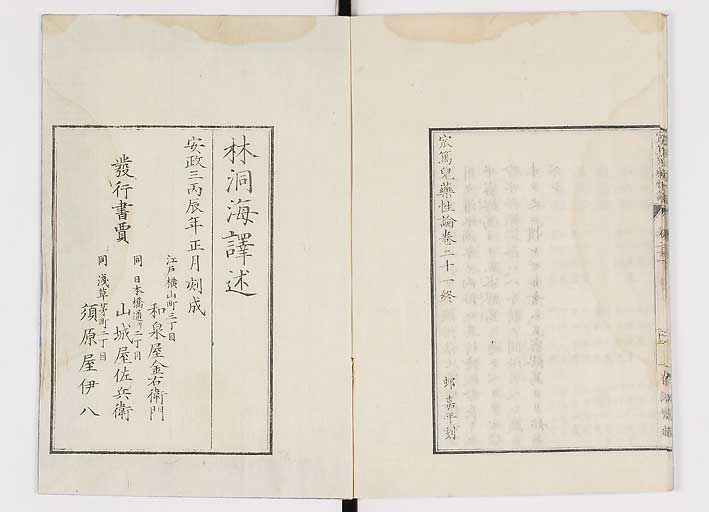 宬篤兒藥性論卷二十一終
邨嘉平刻
林洞海譯述
安政三丙辰年正月刻成
發行書賈
江戸横山町三丁目
和泉屋金右衛門
同日本橋通リ二丁目
山城屋佐兵衛
同淺草茅町二丁目
須原屋伊八